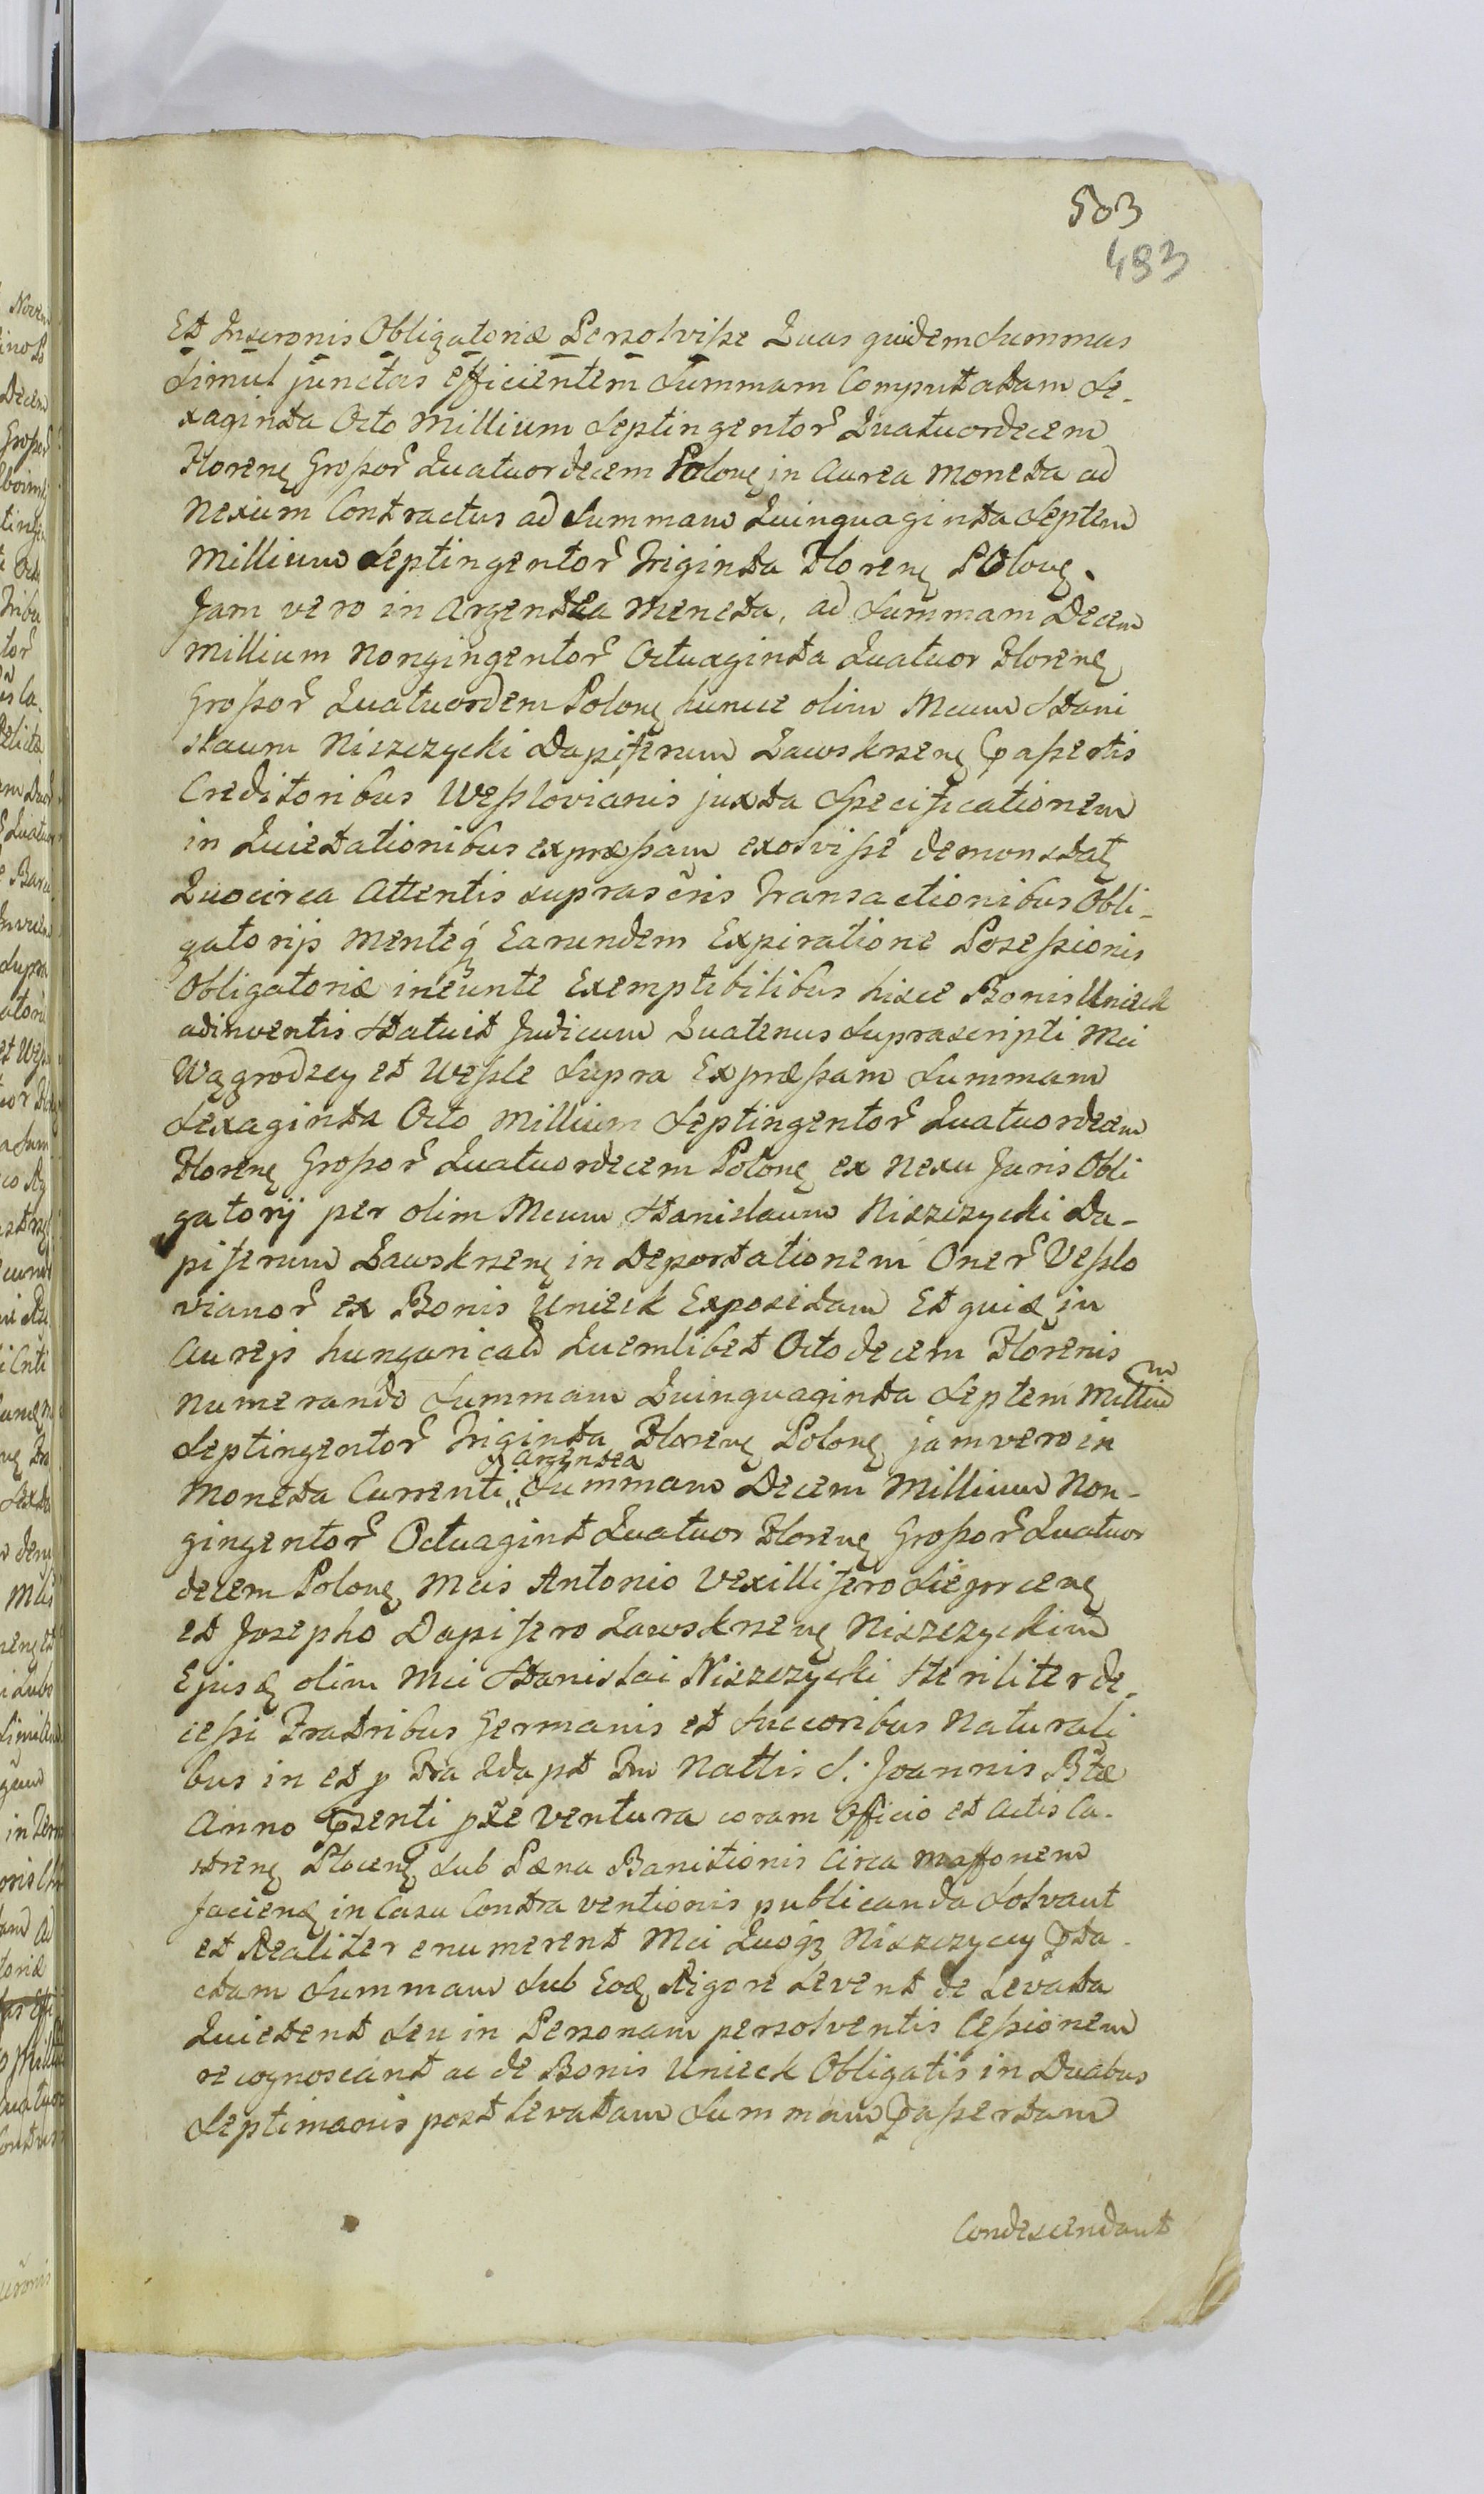 503
483
Et Inscronis Obligatoriæ Persolviße Quas quidem Summas
Simul junctas efficientem Summam Computatam Se-
xaginta Octo Millium Septingentor̃ Quatuordecem
Florenę Großor̃ Quatuordecem Polonę in Aurea Moneta ad
Nexum Contractus ad Summam Quinquaginta Septem
Millium Septingentor̃ Triginta Florenę Polonę.
Jam vero in Argentea Meneta, ad Summam Decem
Millium Nongingentor̃ Octuaginta Quatuor Florenę
Großor̃ Quatuordem Polonę hunce olim Mcum Stani
slaum Niszczycki Dapiferum Zawskrzenę p̱aßertis
Creditoribus Weßlovianis juxta Specificationem
in Quietationibus expræßam exosviße demonstatę
Quocirca Attentis suprascr̃is Transactionibus Obli-
gatorijs menteq́ Earundem Expiratione Poseßionis
Obligatoriæ ineunte Exemptibilibus hisce Bonis Unieck
adinventis Statuit Judicum Quatenus Suprascripti Mci
Wągrodzcy et Weßle Supra Expræßam Summam
Sexaginta Octo Millium Septingentor̃ Quatuordecem
Florenę Großor̃ Quatuordecem Polonę ex Nexu Juris Obli
gatorij per olim Mcum Stanislaum Niszczycki Da-
piferum Zawskrzenę in Deportationem Oner̃ Veßlo
vianor̃ ex Bonis Unieck Expositam Et quiæ in
Aureis hungaricalł Quemlibet Octodecem Florenis
numerando Summam Quinquaginta Septem Millium
Septingentor̃ Triginta Florenę Polonę jamvero in
Moneta Currenti y Argentea Summam Decem Millium Non-
gingentor̃ Octuagint Quatuor Florenę Großor̃ Quatuor
decem Polonę Mcis Antonio Vexillifero Sieprcenę
et Josepho Dapifero Zawskrzenę Niszczyckim
Ejusdę olim Mci Stanislai Niszczycki Steriliter de-
ceßi Fratribus Germanis et Succoribus Naturali
bus in et p Fra 2da pt Fm Nattis S. Joannis Btæ
Anno p̱senti pxe ventura coram Officio et Actis Ca-
strenę Płocenę Sub Pæna Banitionis Circa
faciendę in Casu Contra ventionis publicanda Solvant
et Realiter enumerent Mci Quoqz Niszczyccy p̱ta-
ctam Summam Sub Eodę Rigore Levent de Levata
Quietent Seu in Personam persolventis Ceßionem
recognoscant ac de Bonis Unieck Obligatis in Duabus
Septimanis post Levatam Summam p̱aßertam
Condescendant